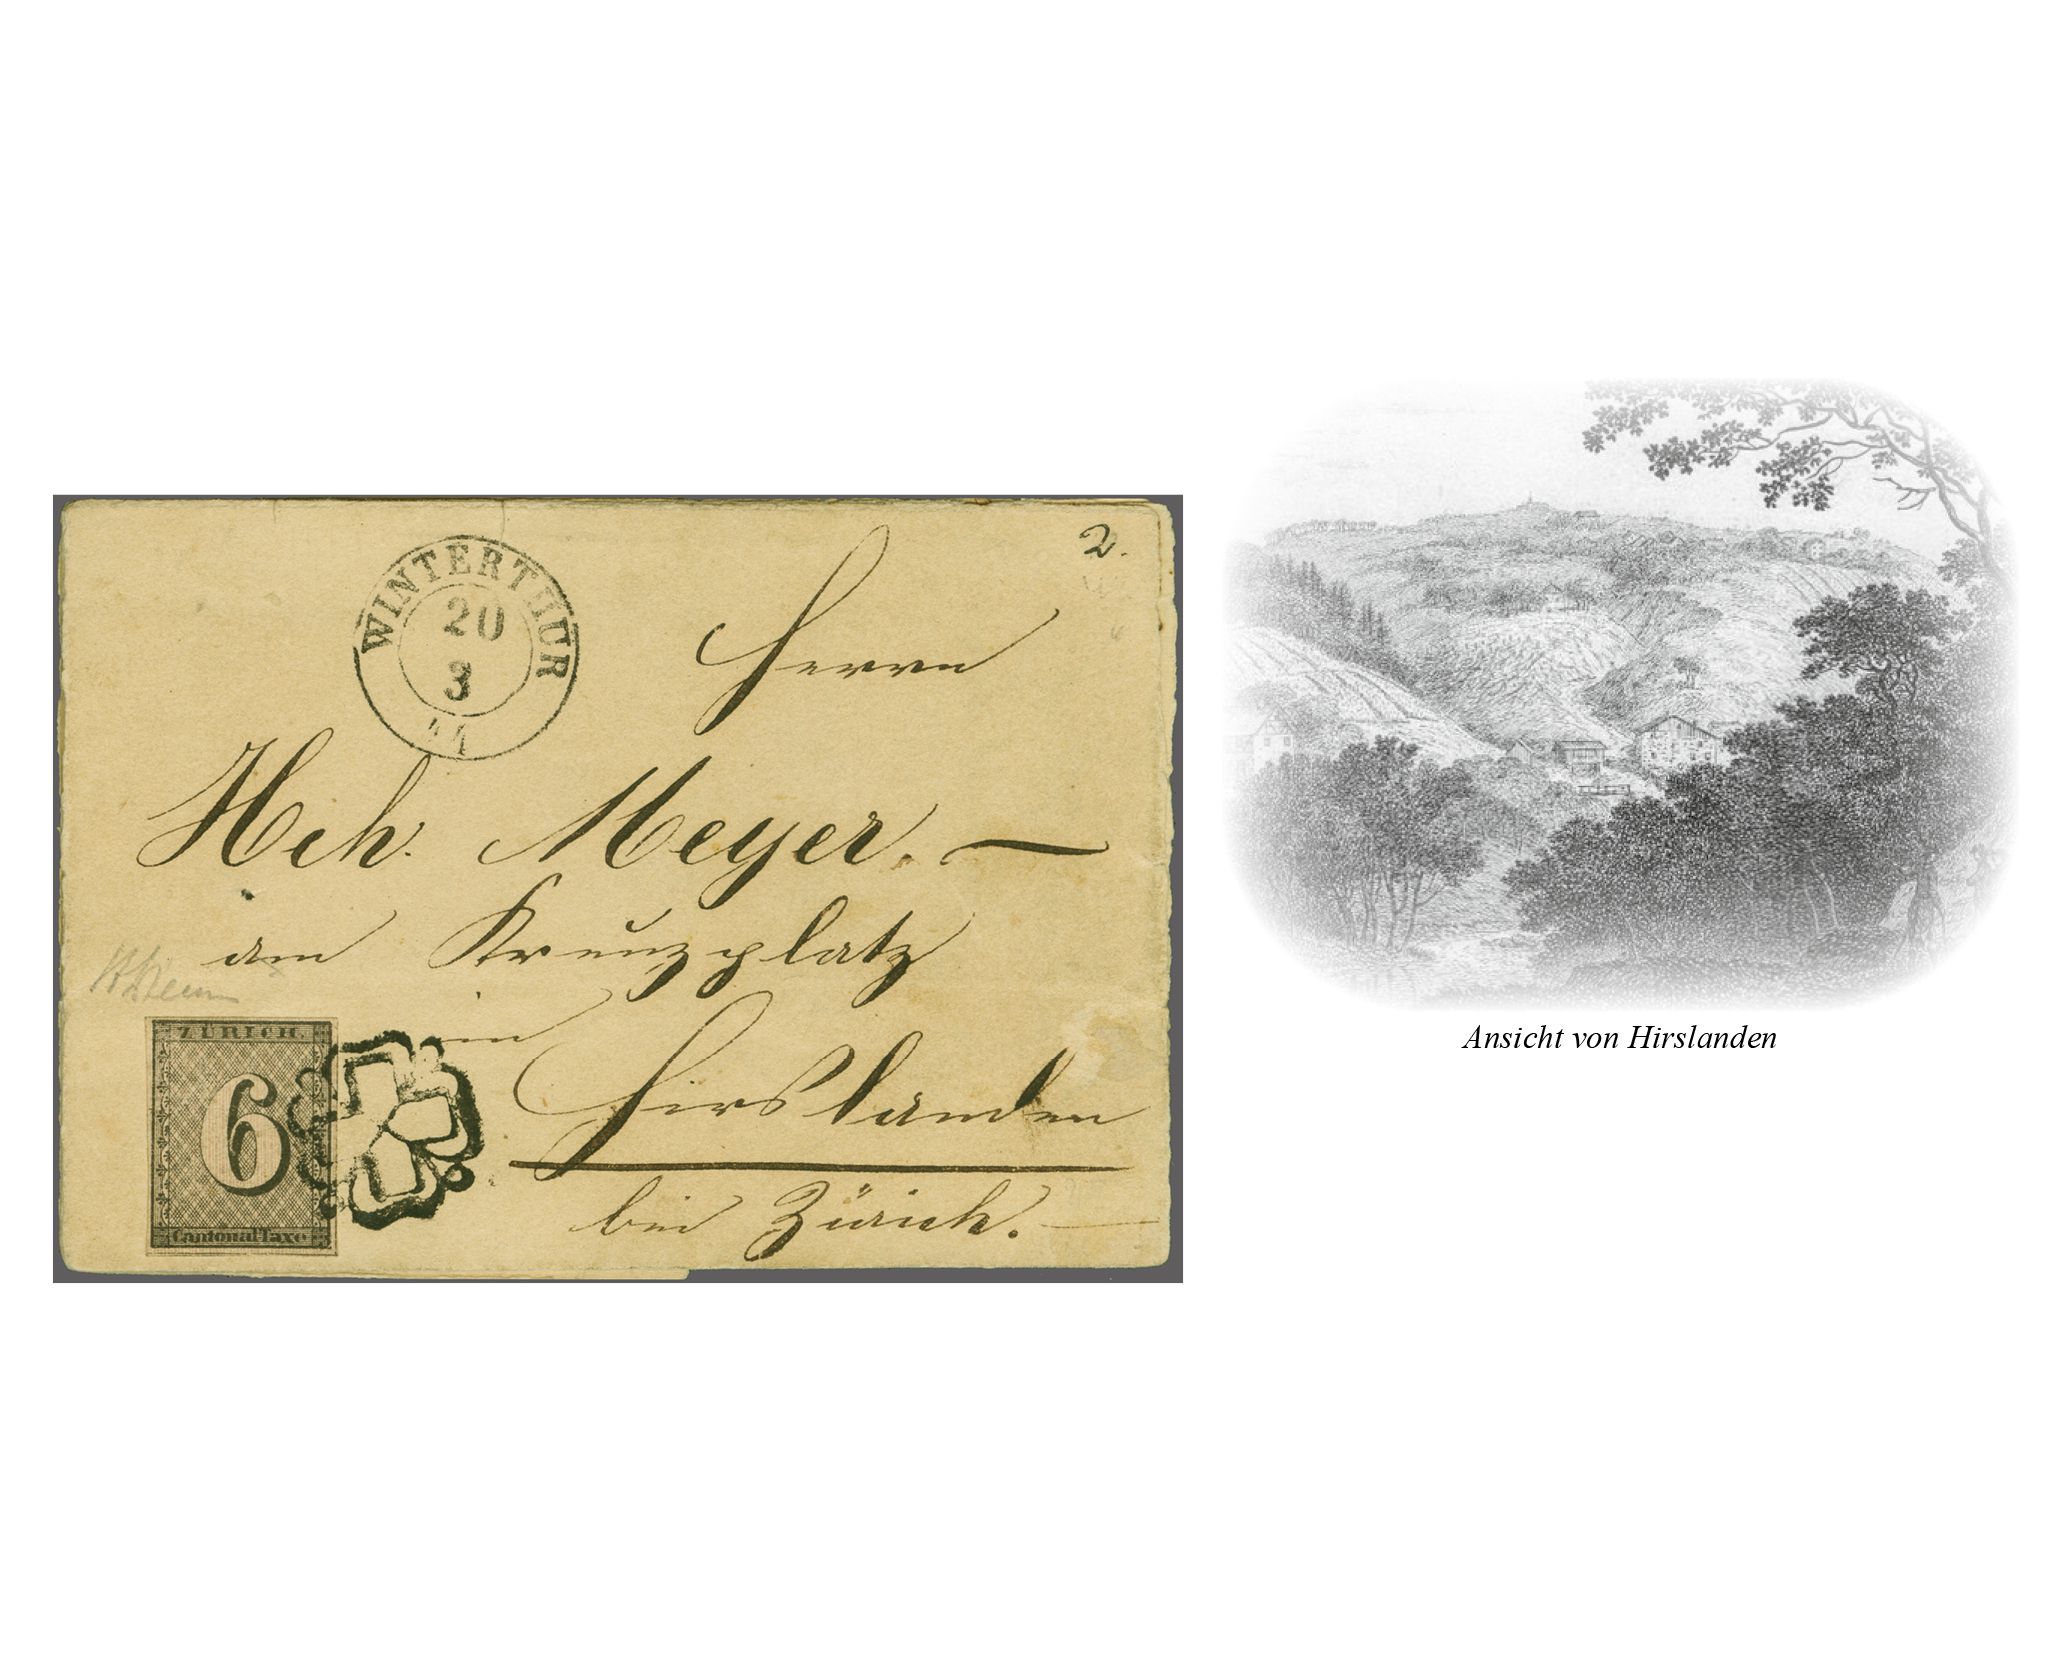 WINTERTHUR
20
3
2.
Herrn
Hch. Meyer. —
am Kreuzplatz
in
Hirslanden
bei Zürich. —
ZÜRICH.
6
Cantonal-Taxe
Ansicht von Hirslanden